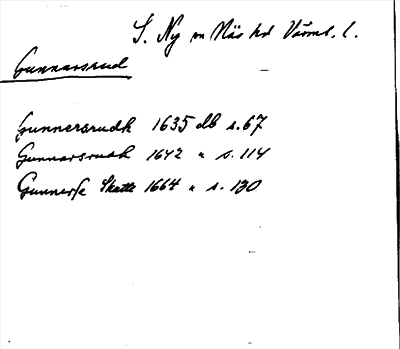 S. Ny m Näs hd Värml. l.
Gunnarsrud
Gunnersrudh 1635 db s. 67
Gunnarsrudh 1642 " s. 114
Gunnersr Skatte 1664 " s. 130